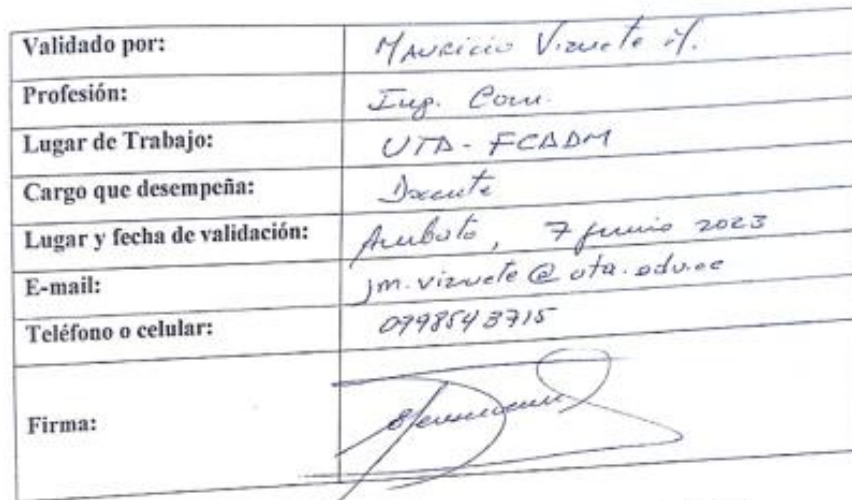 Validado por: Mauricio Vizuete M.
Profesión: Ing. Com.
Lugar de Trabajo: UTA - FCADM
Cargo que desempeña: Docente
Lugar y fecha de validación: Ambato, 7 junio 2023
E-mail: jm.vizuete@uta.edu.ec
Teléfono o celular: 0998543715
Firma: